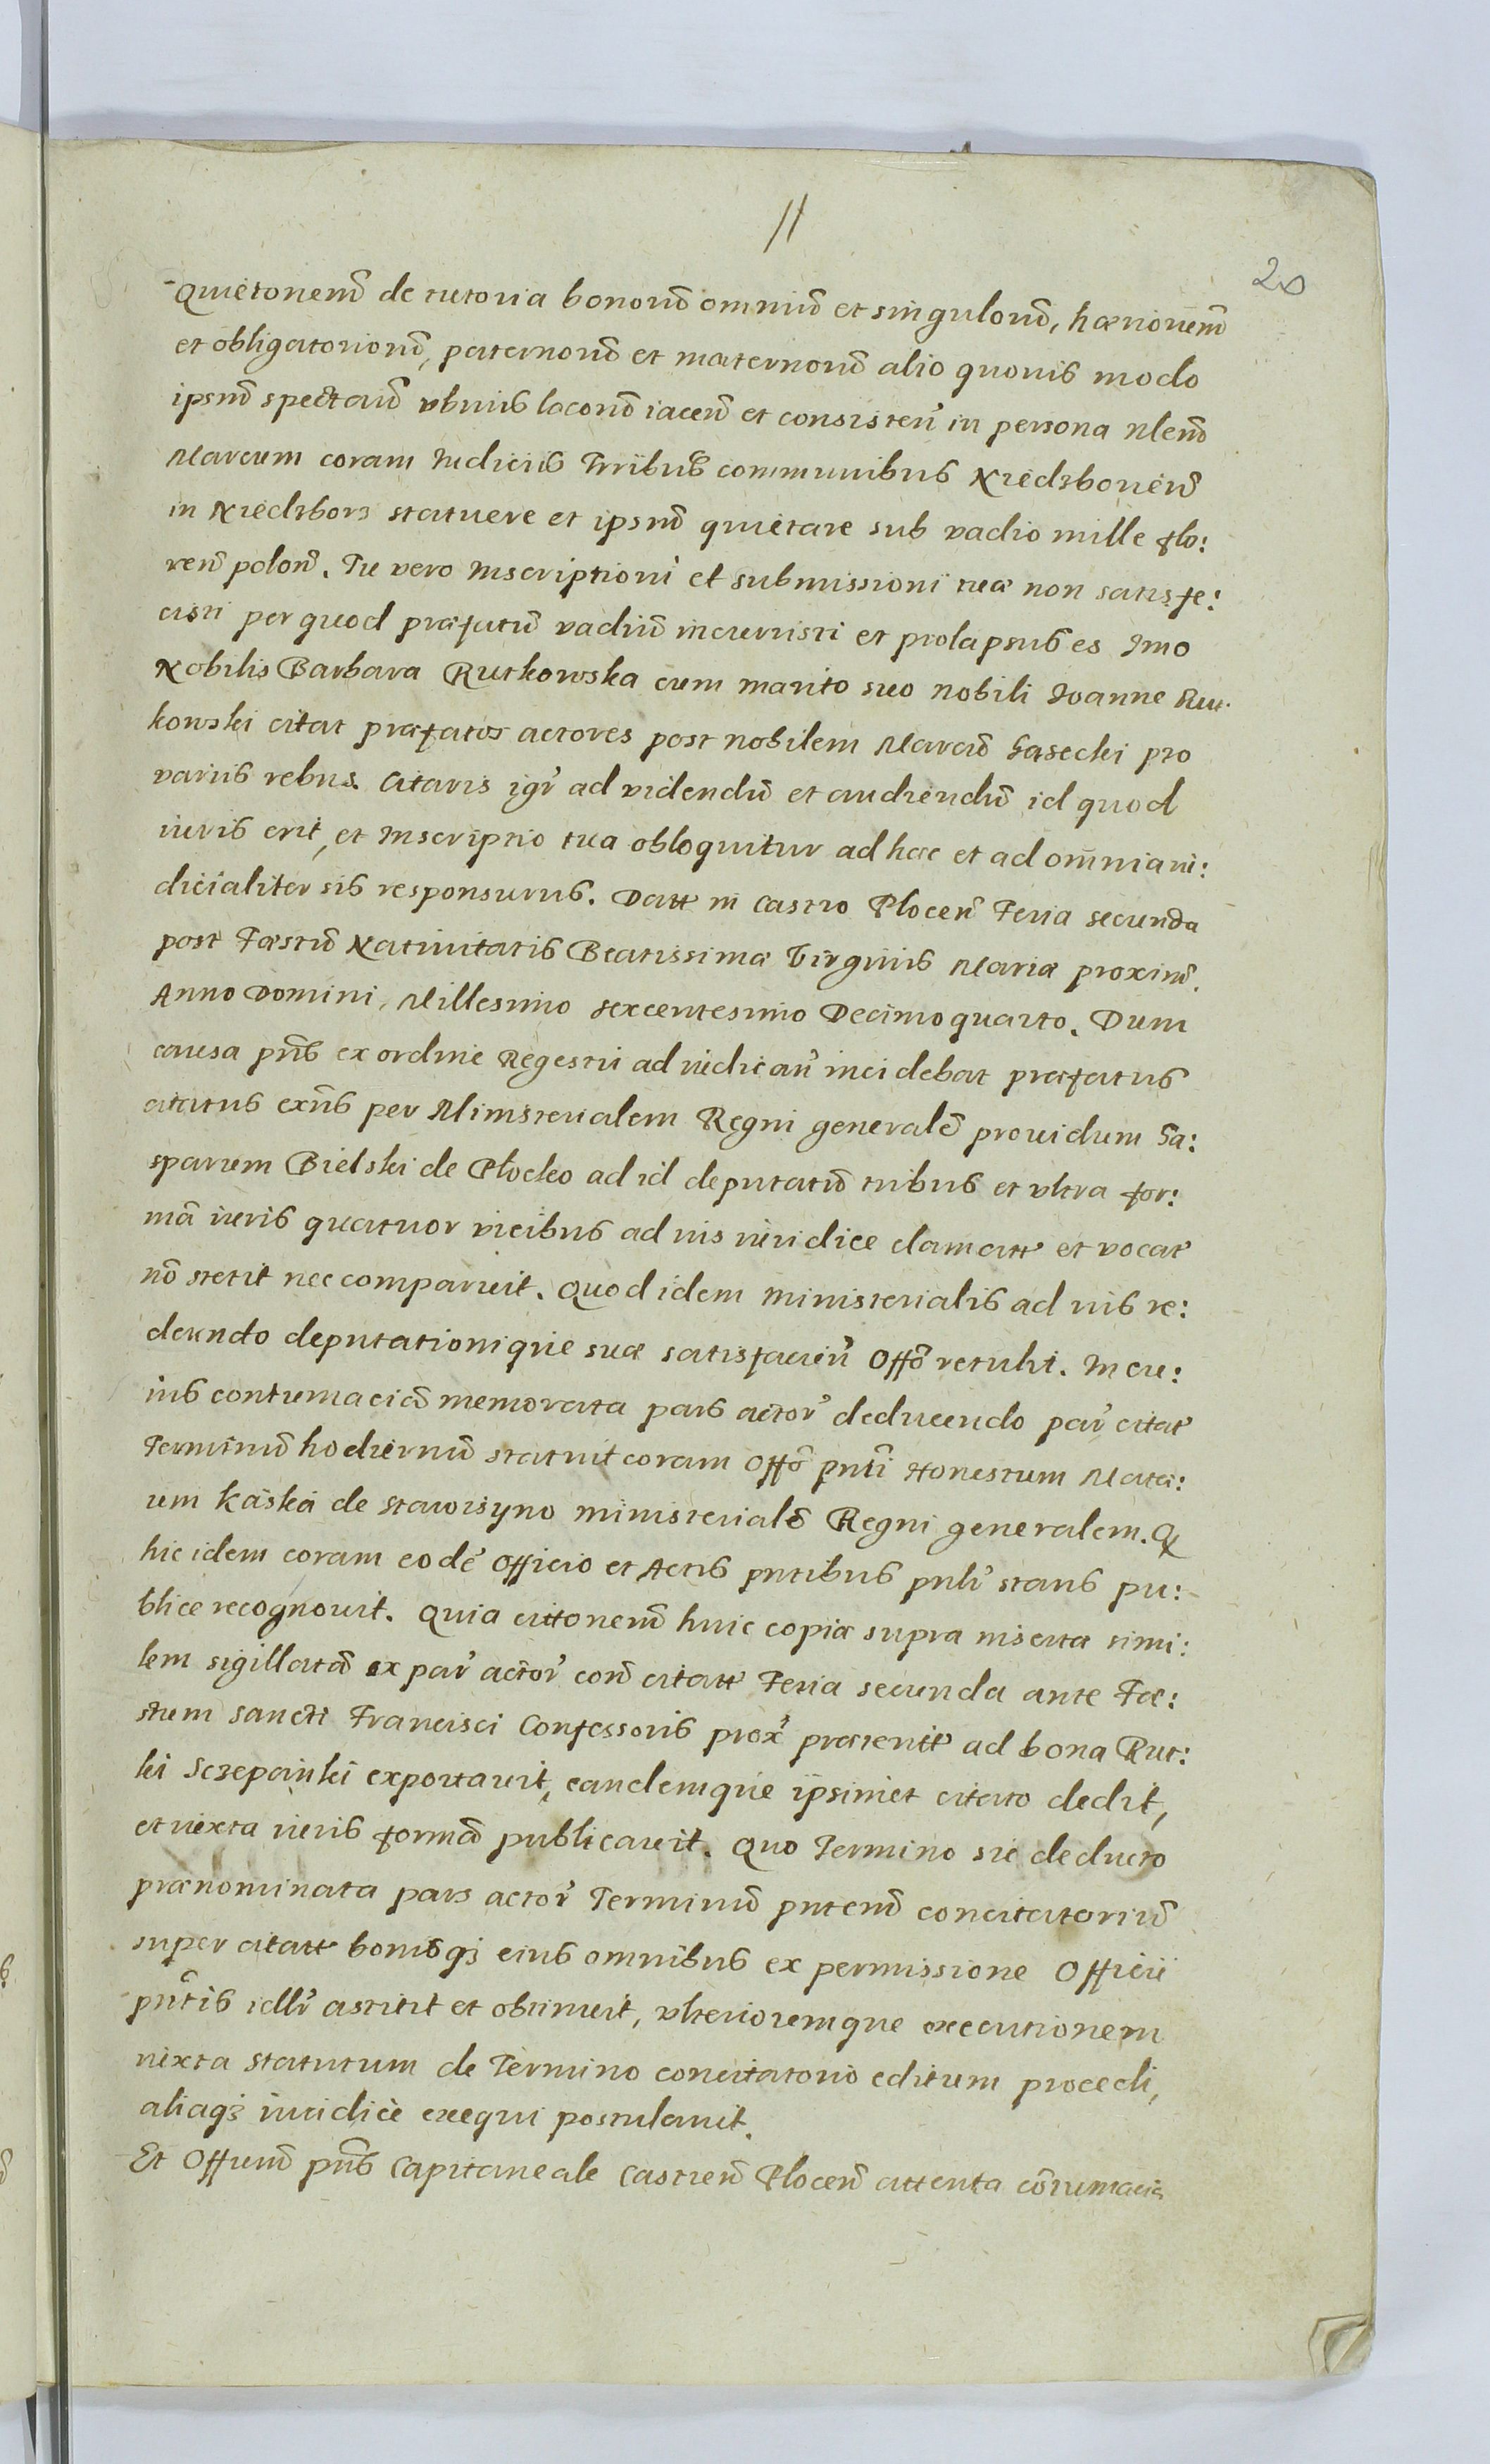 11
20
Quietonem̃ de tutoria bonorũ omniũ et singulorũ, hærioñem̃
et obligatoriorũ, paternorũ et maternorũ alio quovis modo
ipsũ spectañ ubivis locorũ iaceñ et consisteñ in persona nlem̃
Marcum coram Iudiciis Trribus communibus Niedzboreñ
in Niedzborz statuere et ipsũ quietare sub vadio mille flo:
reñ poloñ. Tu vero Inscriptioni et submissioni tuæ non satisfe:
cisti per quod præfatũ vadiũ incurristi et prolapsus es Imo
Nobilis Barbara Rutkowska cum marito suo nobili Ioanne Rut.
kowski citat præfatos actores post nobilem Marcũ Gasecki pro
variis rebus. Citaris igr̃ ad videndũ et audiendũ id quod
iuris erit, et Inscriptio tua obloquitur ad hæc et ad om̃nia iu:
dicialiter sis responsurus. Datt in Castro Plocen̉ Feria secunda
post Fæstũ Nativitatis Beatissimæ Virginis Mariæ proxim̃.
Anno Domini, Millesimo sexcentesimo Decimoquarto. Dum
causa pñs ex ordine Regestri ad iudicañ incidebat præfatus
citatus exñs per Ministerialem Regni generalẽ providum Ga:
sparum Bielski de Płocko ad id deputatũ tribus et ultra for:
mã iuris quatuor vicibus ad ius iuridice clamatt et vocat
nõ stetit nec comparuit. Quod idem ministerialis ad ius re:
deundo deputationique suæ satisfacieñ Offõ retulit. In cu:
ius contumaciã memorata pars actor̉ deducendo par̉ citat
Terminũ hodiernũ statuit coram Offõ pñti Honestum Mata:
um Kaska de Staworzyno ministerialẽ Regni generalem. Q
hic idem coram eodẽ Officio et Actis pñtibus pñlr̉ stans pu:
blice recognovit. Quia cittonem̃ huic copiæ supra insertæ simi:
lem sigillatã ex par̉ actor̉ con̉ citatt Feria secunda ante Fæ:
stum Sancti Francisci Confessoris prox̉ præterit̉ ad bona Rut:
ki Szczepanki exportavit, eandemque ipsimet citato dedit,
et iuxta iuris formã publicavit. Quo Termino sic deducto
prænominata pars actor̉ Terminũ pñtem̃ concitatoriũ
super citatt bonisqꝫ eius omnibus ex permissione Officii
pñtis idlr̉ astitit et obtinuit, ulterioremque executionem
iuxta statutum de Termino concitatorio editum procedi,
aliaqꝫ iuridice exequi postulavit.
Et Officiũ pñs Capitaneale Castreñ Ploceñ attenta cõtumacia